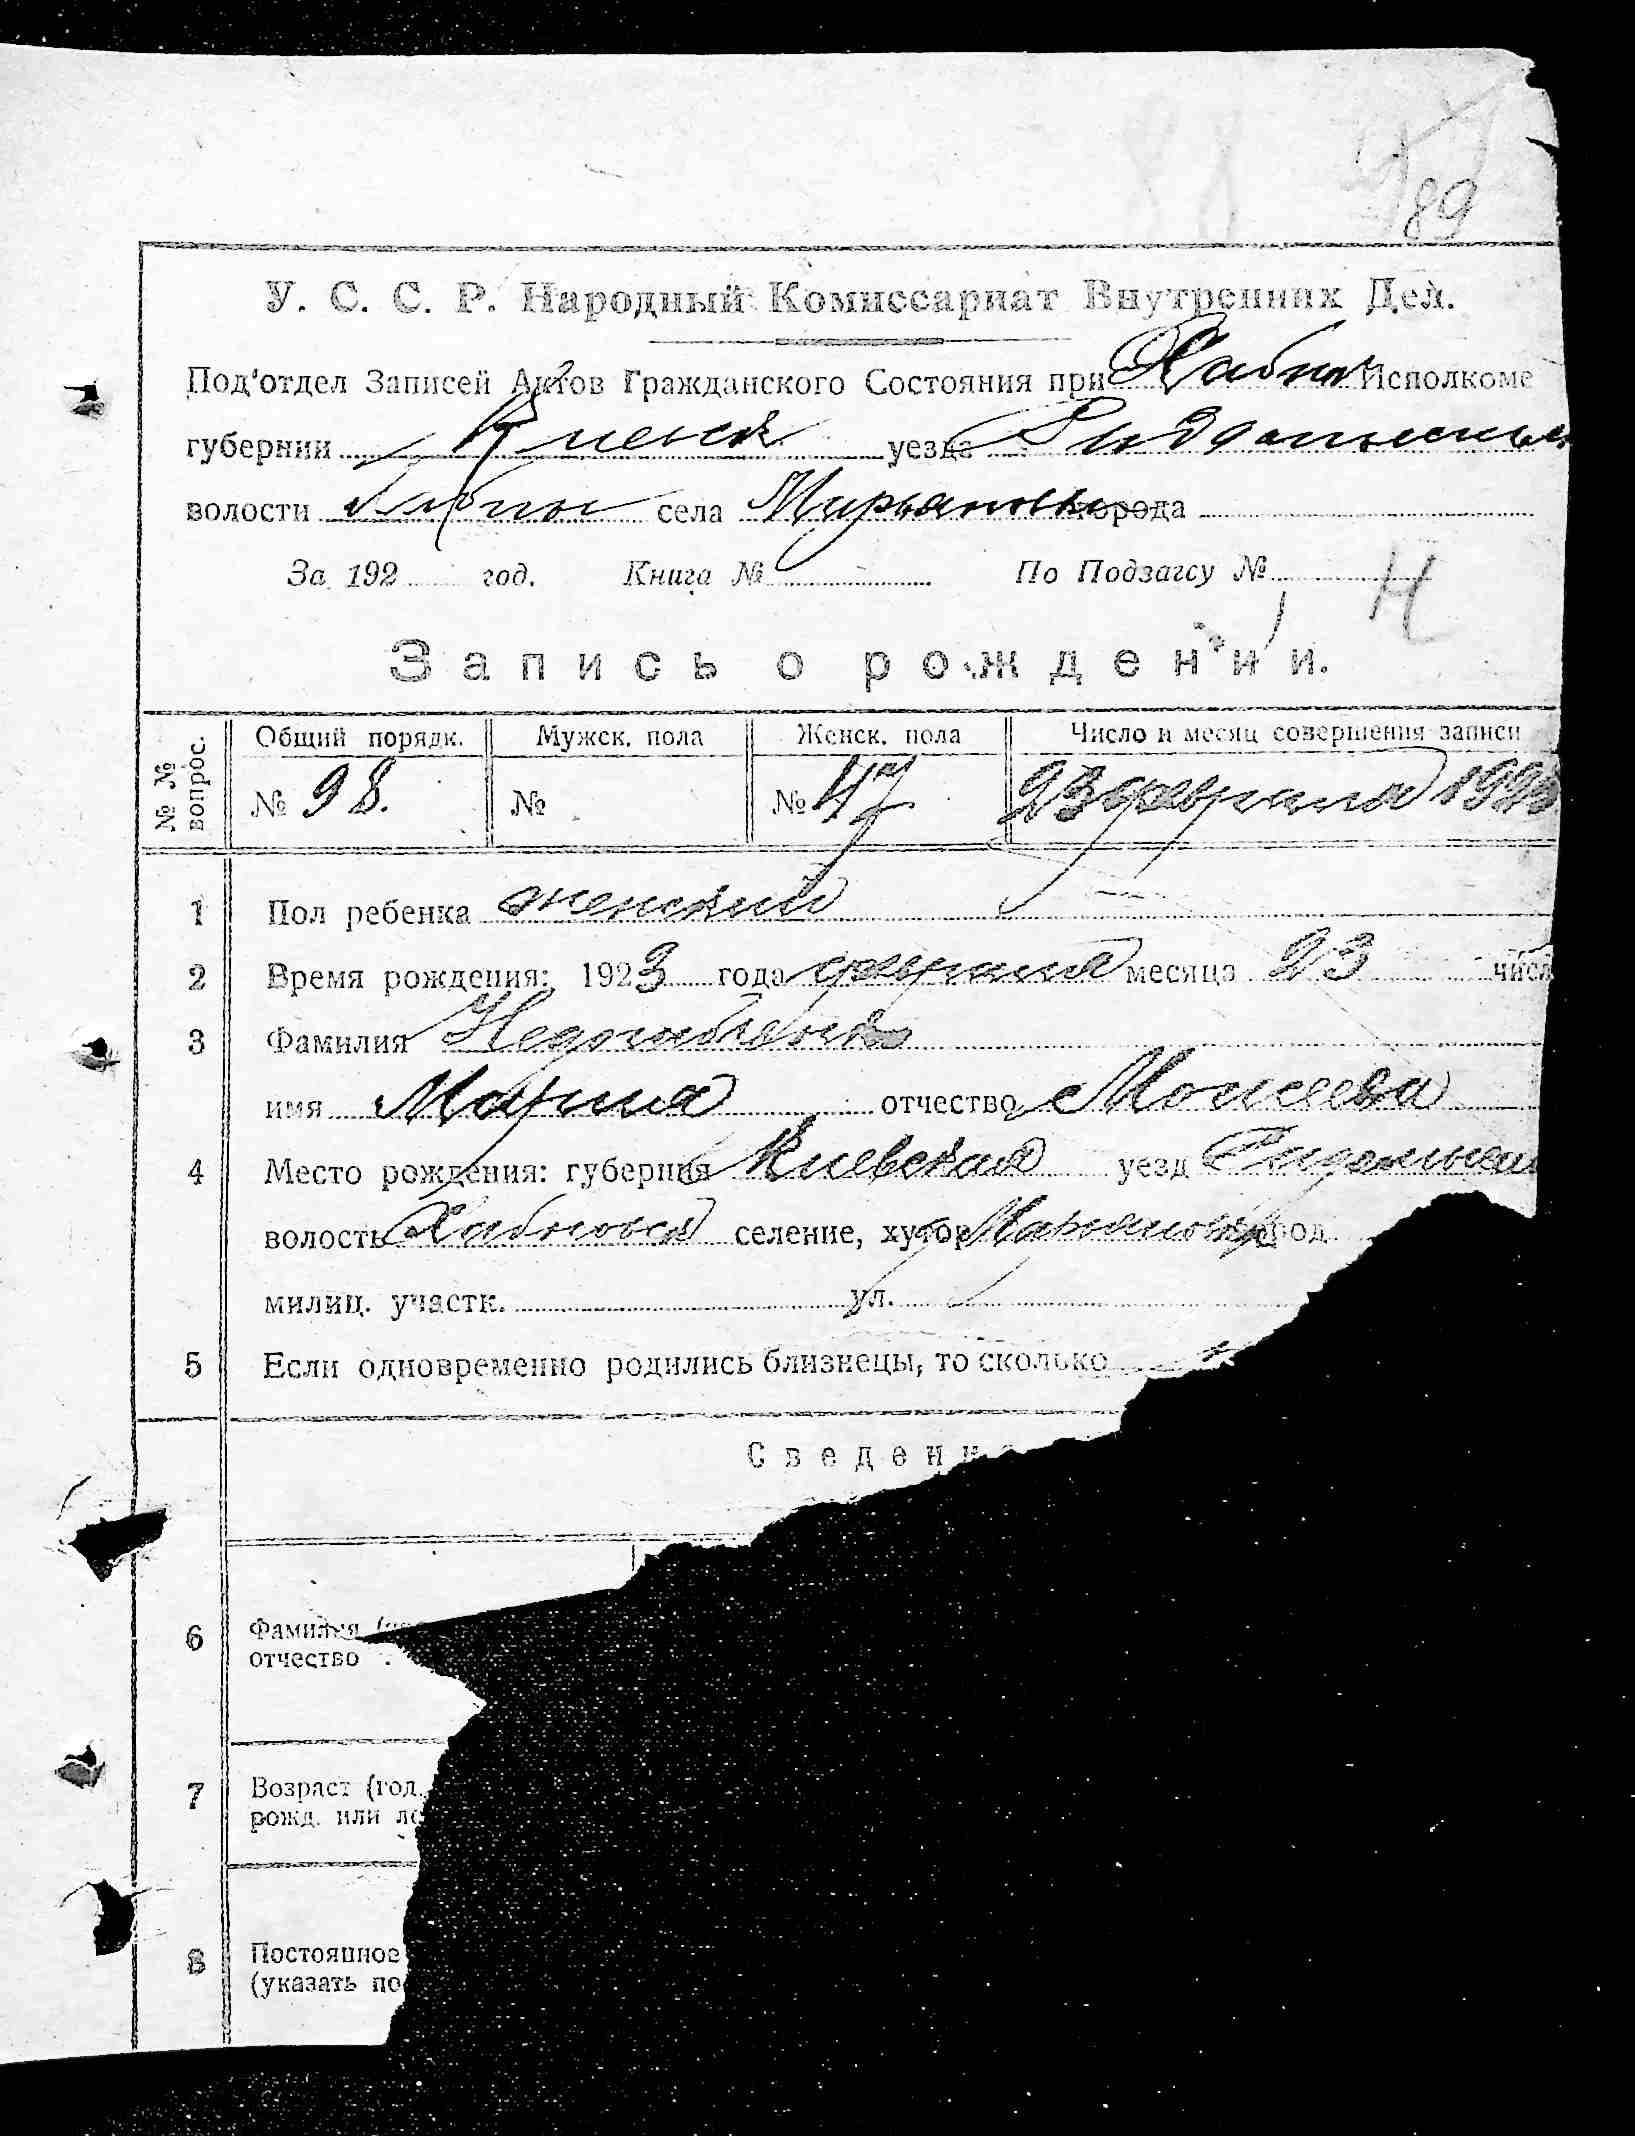 89
У. С. С. Р. Народный Комиссариат Внутренних Дел.
Под'отдел Записей Актов Гражданского Состояния при Хабн Исполкоме
губернии Киевск уезда
волости села Марьяновка города
За 192 год. Книга № По Подзагсу №
Н
Запись о рождении.
№ № вопрос. Общий порядк. Мужск. пола Женск. пола Число и месяц совершения записи
№ 98. № № 47 23 февраля 1923
1 Пол ребенка женский
2 Время рождения: 1923 года февраля месяца 23 числ
3 Фамилия
имя Мария отчество Моисеева
4 Место рождения: губерния Киевская уезд
волость Хабновск селение, хутор Марьяновка город
милиц. участк. ул.
5 Если одновременно родились близнецы, то сколько
Сведени
6 Фамилия
отчество .
7 Возраст (год.
рожд. или
8 Постоянное
(указать по